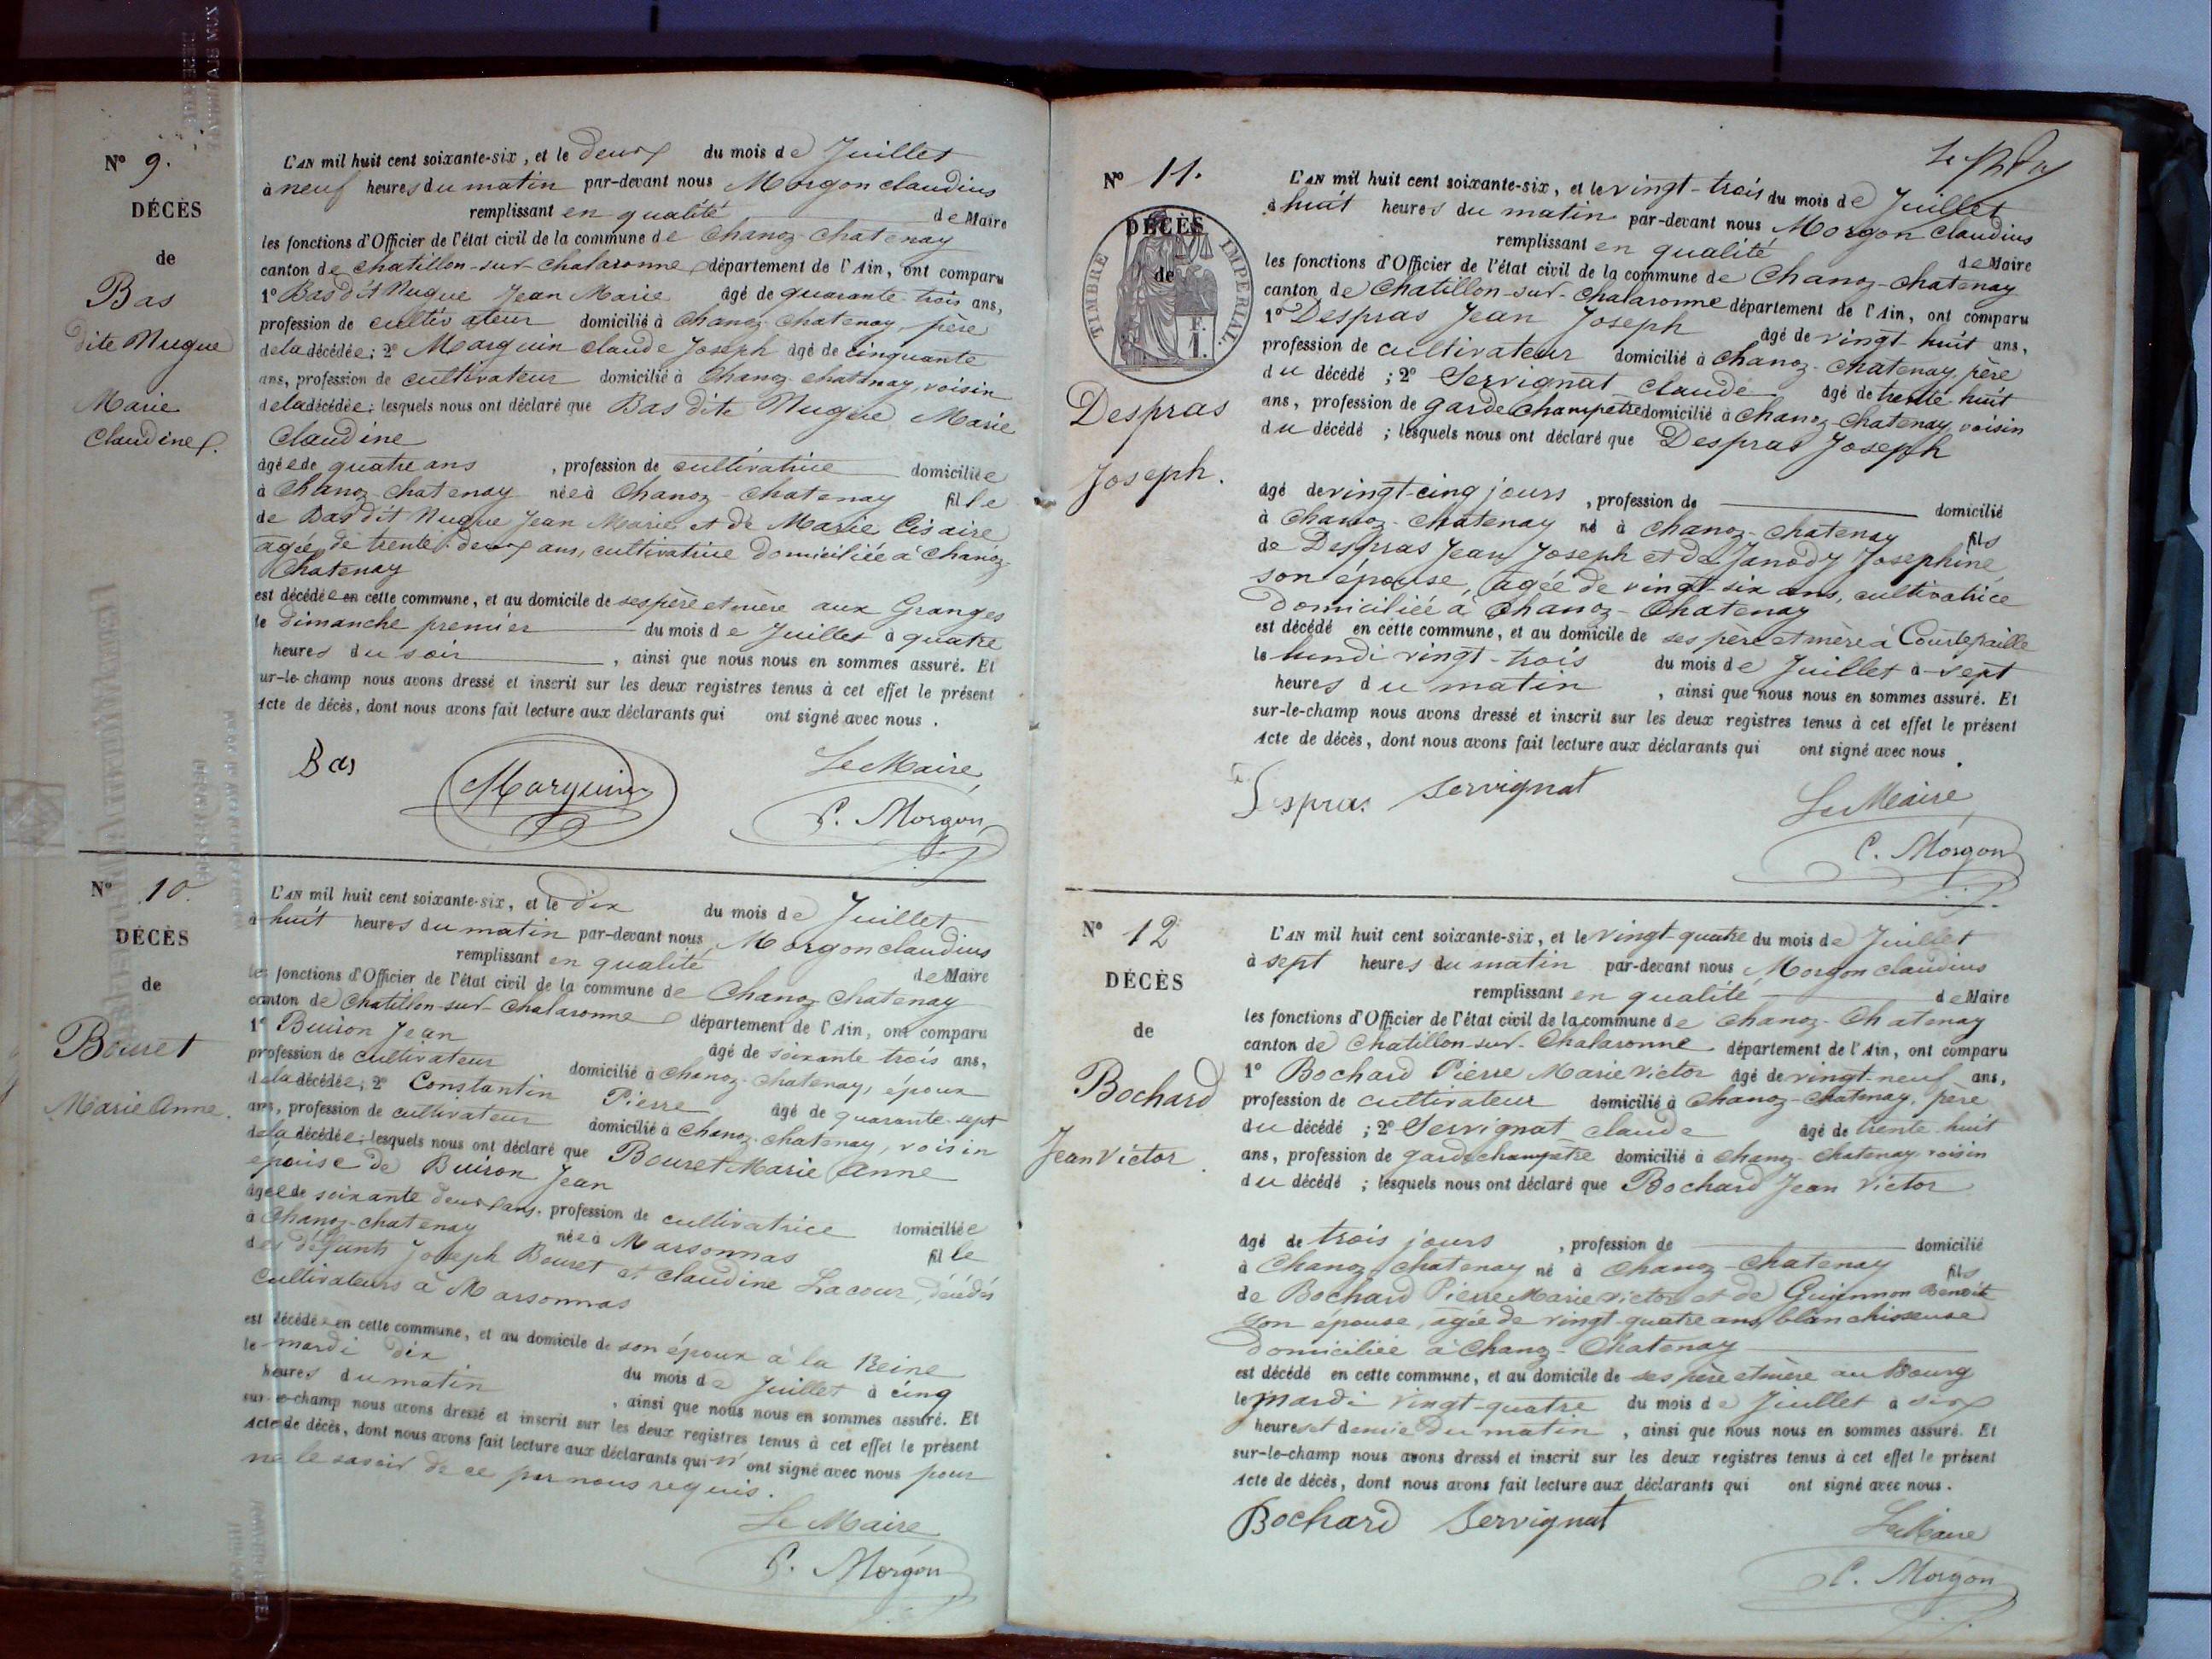 N° 9.
DÉCÈS
de
Bas
dite Nugue
Marie
Claudine.
L'AN mil huit cent soixante-six, et le deux du mois de Juillet
à neuf heures du matin par-devant nous Morgon claudius
remplissant en qualité de Maire
les fonctions d'Officier de l'état civil de la commune de Chanoz-Chatenay
canton de chatillon-sur-chalaronne département de l'Ain, ont comparu
1° Bas dit Nugue Jean Marie âgé de quarante-trois ans,
profession de cultivateur domicilié à Chanoz-Chatenay, père
de la décédée; 2° Marguin claude Joseph âgé de cinquante
ans, profession de cultivateur domicilié à Chanoz-chatenay, voisin
de la décédée; lesquels nous ont déclaré que Bas dite Nugue Marie
Claudine
âgée de quatre ans, profession de cultivatrice domiciliée
à Chanoz-Chatenay née à Chanoz-Chatenay fille
de Bas dit Nugue Jean Marie et de Marie Cisaire
agée de trente-deux ans, cultivatrice domiciliée à Chanoz-
Chatenay
est décédée en cette commune, et au domicile de ses père et mère aux Granges
le dimanche premier du mois de Juillet à quatre
heures du soir, ainsi que nous nous en sommes assuré. Et
ur-le-champ nous avons dressé et inscrit sur les deux registres tenus à cet effet le présent
Acte de décès, dont nous avons fait lecture aux déclarants qui ont signé avec nous.
Bas
Marguin
Le Maire
C. Morgon
N° 10.
DÉCÈS
de
Bouret
Marie Anne.
L'AN mil huit cent soixante-six, et le dix du mois de Juillet
à huit heures du matin par-devant nous Morgon claudius
remplissant en qualité de Maire
les fonctions d'Officier de l'état civil de la commune de Chanoz Chatenay
canton de Chatillon-sur-Chalaronne département de l'Ain, ont comparu
1° Buiron Jean âgé de soixante trois ans,
profession de cultivateur domicilié à Chanoz-Chatenay, époux
de la décédée; 2° Constantin Pierre âgé de quarante-sept
ans, profession de cultivateur domicilié à Chanoz-Chatenay, voisin
de la décédée; lesquels nous ont déclaré que Bouret Marie Anne
epouse de Buiron Jean
âgée de soixante deux ans, profession de cultivatrice domiciliée
à Chanoz-chatenay née à Marsonnas fille
des défunts Joseph Bouret et claudine Lacour, décédés
Cultivateurs à Marsonnas
est décédée en cette commune, et au domicile de son époux à la Reine
le mardi dix du mois de Juillet à cinq
heures du matin, ainsi que nous nous en sommes assuré. Et
sur-le-champ nous avons dressé et inscrit sur les deux registres tenus à cet effet le présent
Acte de décès, dont nous avons fait lecture aux déclarants qui n'ont signé avec nous pour
ne le savoir de ce par nous requis.
Le Maire
C. Morgon
N° 11.
DÉCÈS
de
TIMBRE IMPERIAL
F.
1.
Despras
Joseph.
L'AN mil huit cent soixante-six, et le vingt-trois du mois de Juillet
à huit heures du matin par-devant nous Morgon Claudius
remplissant en qualité de Maire
les fonctions d'Officier de l'état civil de la commune de Chanoz-chatenay
canton de Chatillon-sur-Chalaronne département de l'Ain, ont comparu
1° Despras Jean Joseph âgé de vingt huit ans,
profession de cultivateur domicilié à Chanoz-Chatenay, père
du décédé; 2° Servignat Claude âgé de trente huit
ans, profession de garde champêtre domicilié à Chanoz-Chatenay, voisin
du décédé; lesquels nous ont déclaré que Despras Joseph
âgé de vingt-cinq jours, profession de domicilié
à Chanoz-Chatenay né à Chanoz-Chatenay fils
de Despras Jean Joseph et de Janody Josephine
son épouse, agée de vingt-six ans, cultivatrice
Domiciliée à Chanoz-Chatenay
est décédé en cette commune, et au domicile de ses père et mère à Courtepaille
le lundi vingt-trois du mois de Juillet à sept
heures du matin, ainsi que nous nous en sommes assuré. Et
sur-le-champ nous avons dressé et inscrit sur les deux registres tenus à cet effet le présent
Acte de décès, dont nous avons fait lecture aux déclarants qui ont signé avec nous.
Despras Servignat
Le Maire
C. Morgon
N° 12
DÉCÈS
de
Bochard
Jean Victor.
L'AN mil huit cent soixante-six, et le vingt-quatre du mois de Juillet
à sept heures du matin par-devant nous Morgon claudius
remplissant en qualité de Maire
les fonctions d'Officier de l'état civil de la commune de Chanoz-Chatenay
canton de Chatillon-sur-Chalaronne département de l'Ain, ont comparu
1° Bochard Pierre Marie Victor âgé de vingt-neuf ans,
profession de cultivateur domicilié à Chanoz-Chatenay, père
du décédé; 2° Servignat claude âgé de trente huit
ans, profession de garde champêtre domicilié à Chanoz-Chatenay voisin
du décédé; lesquels nous ont déclaré que Bochard Jean Victor
âgé de trois jours, profession de domicilié
à Chanoz Chatenay né à Chanoz-Chatenay fils
de Bochard Pierre Marie Victor et de Benoite
son épouse, agée de vingt-quatre ans, blanchisseuse
domiciliée à Chanoz-Chatenay
est décédé en cette commune, et au domicile de ses père et mère au Bourg
le mardi vingt-quatre du mois de Juillet à six
heures et demie du matin, ainsi que nous nous en sommes assuré. Et
sur-le-champ nous avons dressé et inscrit sur les deux registres tenus à cet effet le présent
Acte de décès, dont nous avons fait lecture aux déclarants qui ont signé avec nous.
Bochard Servignat
Le Maire
C. Morgon